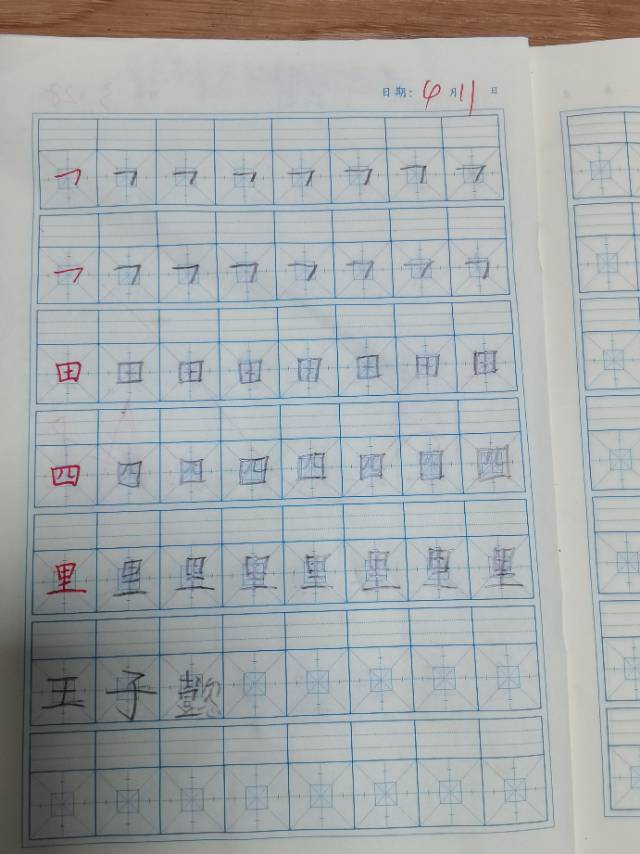 日期: 4月11日
㇕ ㇕ ㇕ ㇕ ㇕ ㇕ ㇕ ㇕
㇕ ㇕ ㇕ ㇕ ㇕ ㇕ ㇕ ㇕
田 田 田 田 田 田 田 田
四 四 四 四 四 四 四 四
里 里 里 里 里 里 里 里
王 子 懿